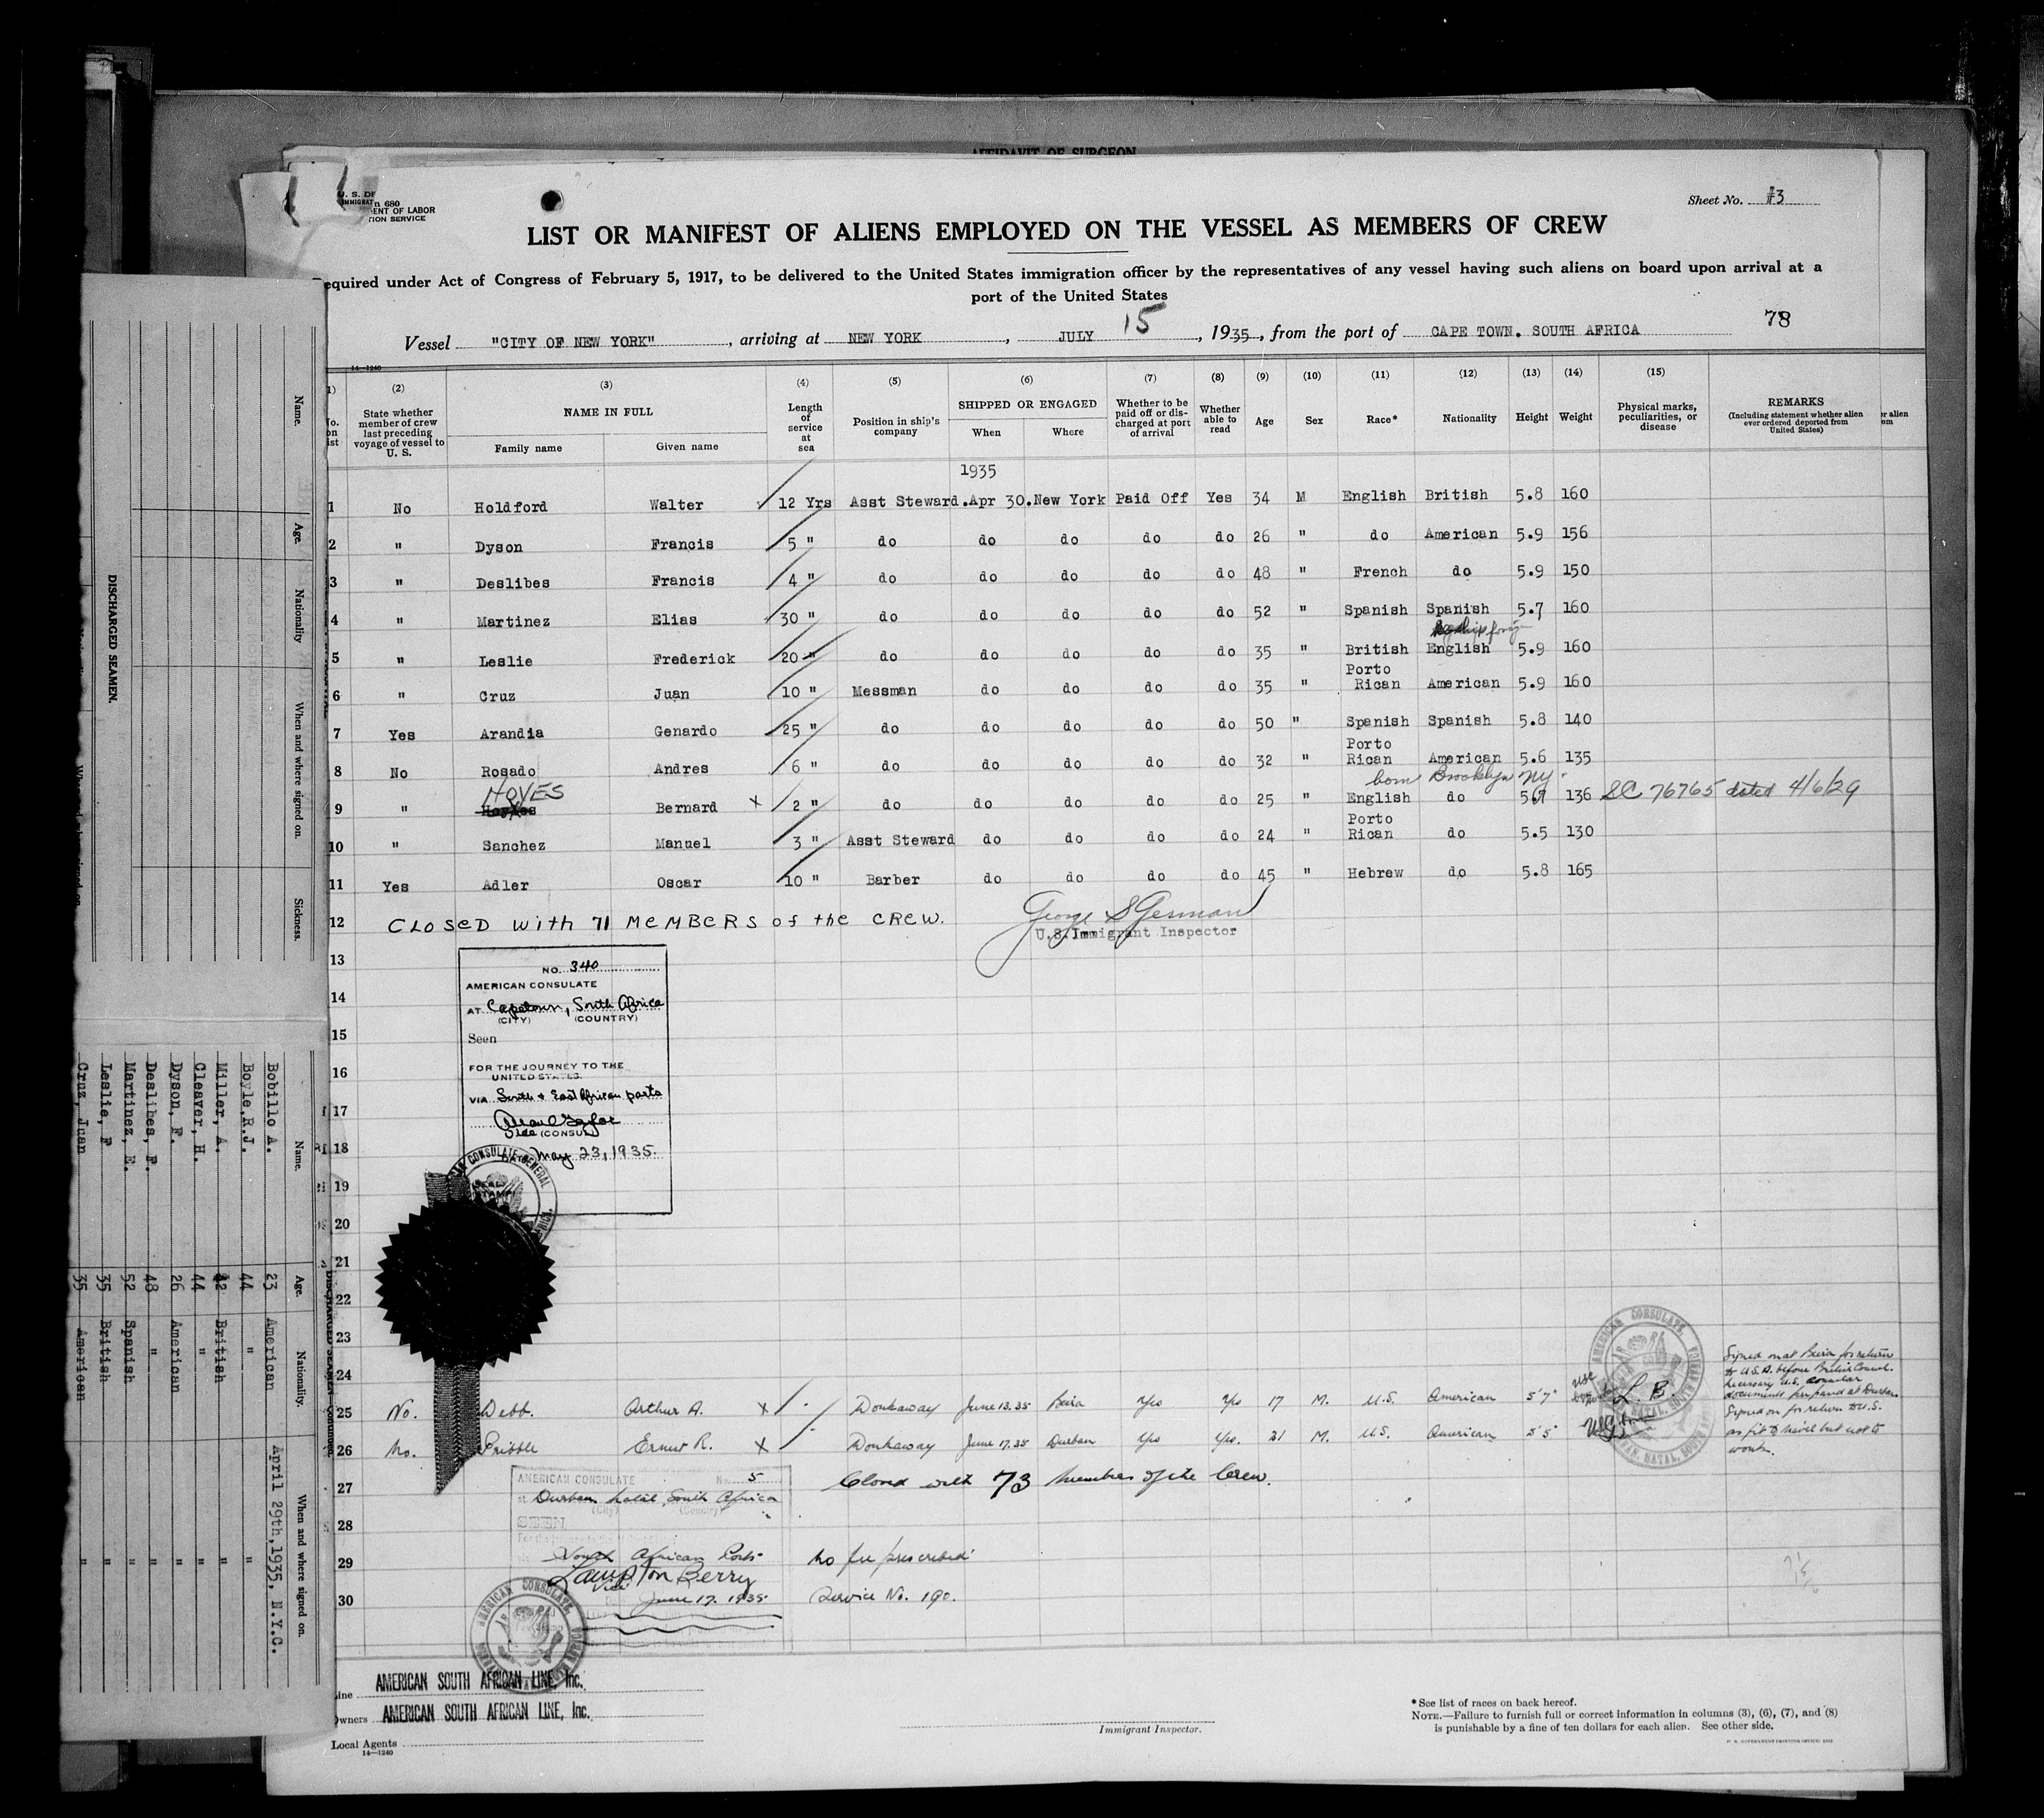 AFFIDAVIT OF SURGEON
U. S. DE
IMMIGRAT
n 680
ENT OF LABOR
TION SERVICE
Sheet No. #3
LIST OR MANIFEST OF ALIENS EMPLOYED ON THE VESSEL AS MEMBERS OF CREW
equired under Act of Congress of February 5, 1917, to be delivered to the United States immigration officer by the representatives of any vessel having such aliens on board upon arrival at a
port of the United States
78
Vessel "CITY OF NEW YORK", arriving at NEW YORK, JULY 15, 1935, from the port of CAPE TOWN. SOUTH AFRICA
14—1240
1) (2) (3) (4) (5) (6) (7) (8) (9) (10) (11) (12) (13) (14) (15)
No. on list
State whether member of crew last preceding voyage of vessel to U. S.
NAME IN FULL
Family name Given name
Length of service at sea
Position in ship's company
SHIPPED OR ENGAGED
When Where
Whether to be paid off or discharged at port of arrival
Whether able to read
Age
Sex
Race*
Nationality
Height
Weight
Physical marks, peculiarities, or disease
REMARKS
(Including statement whether alien ever ordered deported from United States)
er alien
om
1935
1 No Holdford Walter 12 Yrs Asst Steward. Apr 30. New York Paid Off Yes 34 M English British 5.8 160
2 " Dyson Francis 5 " do do do do do 26 " do American 5.9 156
3 " Deslibes Francis 4 " do do do do do 48 " French do 5.9 150
4 " Martinez Elias 30 " do do do do do 52 " Spanish Spanish 5.7 160
5 " Leslie Frederick 20 " do do do do do 35 " British English 5.9 160
6 " Cruz Juan 10 " Messman do do do do 35 " Porto Rican American 5.9 160
7 Yes Arandia Genardo 25 " do do do do do 50 " Spanish Spanish 5.8 140
8 No Rosado Andres 6 " do do do do do 32 " Porto Rican American 5.6 135
HOYES
born Brooklyn NY.
9 " Bernard X 2 " do do do do do 25 " English do 5.7 136 SC 76765 dated 4/6/29
10 " Sanchez Manuel 3 " Asst Steward do do do do 24 " Porto Rican do 5.5 130
11 Yes Adler Oscar 10 " Barber do do do do 45 " Hebrew do 5.8 165
12 CLOSED with 71 MEMBERS of the CREW.
George S German
U.S. Immigrant Inspector
13
14
15
16
17
18
19
20
21
22
23
24
NO. 340
AMERICAN CONSULATE
AT Capetown, South Africa
(CITY) (COUNTRY)
Seen
FOR THE JOURNEY TO THE
UNITED STATES.
VIA South & East African ports
Vice (CONSUL)
DATE May 23, 1935.
25 No. Webb. Arthur A. X Workaway June 13. 35 Beira Yes Yes 17 M. U.S. American 5'7"
L. B.
Signed on at Beira for return
to U.S.A. before British Consul.
Necessary U.S. consular
documents prepared at Durban.
26 No. Pribble Ernest R. X Workaway June 17. 35 Durban Yes Yes. 21 M. U.S. American 5'5"
Signed on for return to U.S.
as fit to travel but not to
work.
27 Closed with 73 members of the Crew.
28
29 No fee prescribed
30 Service No. 190.
AMERICAN CONSULATE No. 5
at Durban Natal, South Africa
(City) (Country)
SEEN
South African Ports
Lampton Berry
Vice
June 17. 1935
AMERICAN CONSULATE
Line AMERICAN SOUTH AFRICAN LINE, Inc.
Owners AMERICAN SOUTH AFRICAN LINE, Inc.
Local Agents
14—1240
Immigrant Inspector.
*See list of races on back hereof.
NOTE.—Failure to furnish full or correct information in columns (3), (6), (7), and (8)
is punishable by a fine of ten dollars for each alien. See other side.
U. S. GOVERNMENT PRINTING OFFICE
DISCHARGED SEAMEN.
Name. Age. Nationality When and where signed on. Sickness.
Name. Age. Nationality. When and where signed on.
Bobillo A. 23 American April 29th, 1935, N.Y.C.
Boyle, R.J. 44 " "
Miller, A. 42 British "
Cleaver, H. 44 " "
Dyson, F. 26 American "
Deslibes, F. 48 " "
Martinez, E. 52 Spanish "
Leslie, F 35 British "
Cruz, Juan 35 American "